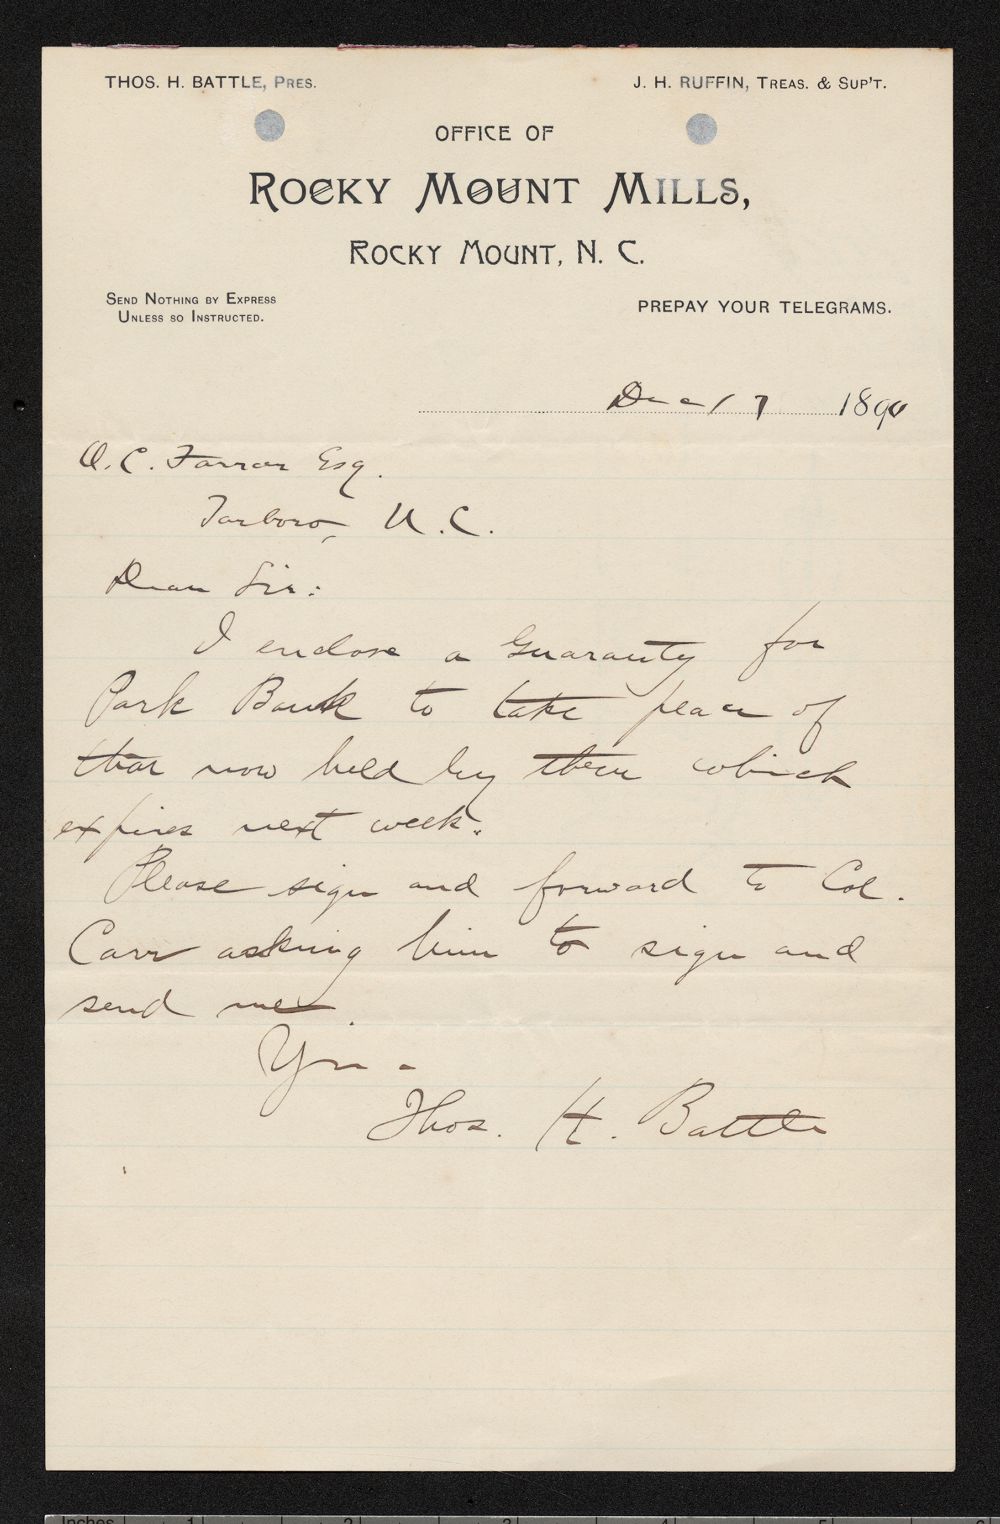 THOS. H. BATTLE, PRES.
J. H. RUFFIN, TREAS. & SUP'T.
OFFICE OF
ROCKY MOUNT MILLS,
ROCKY MOUNT, N. C.
SEND NOTHING BY EXPRESS
UNLESS SO INSTRUCTED.
PREPAY YOUR TELEGRAMS.
Dec 17 1890
O. C. Farrar Esq.
Tarboro, N. C.
Dear Sir:
I enclose a Guaranty for
Park Bank to take place of
that now held by them which
expires next week.
Please sign and forward to Col.
Carr asking him to sign and
send me.
Yrs -
Thos. H. Battle
Inches 1 2 3 4 5 6